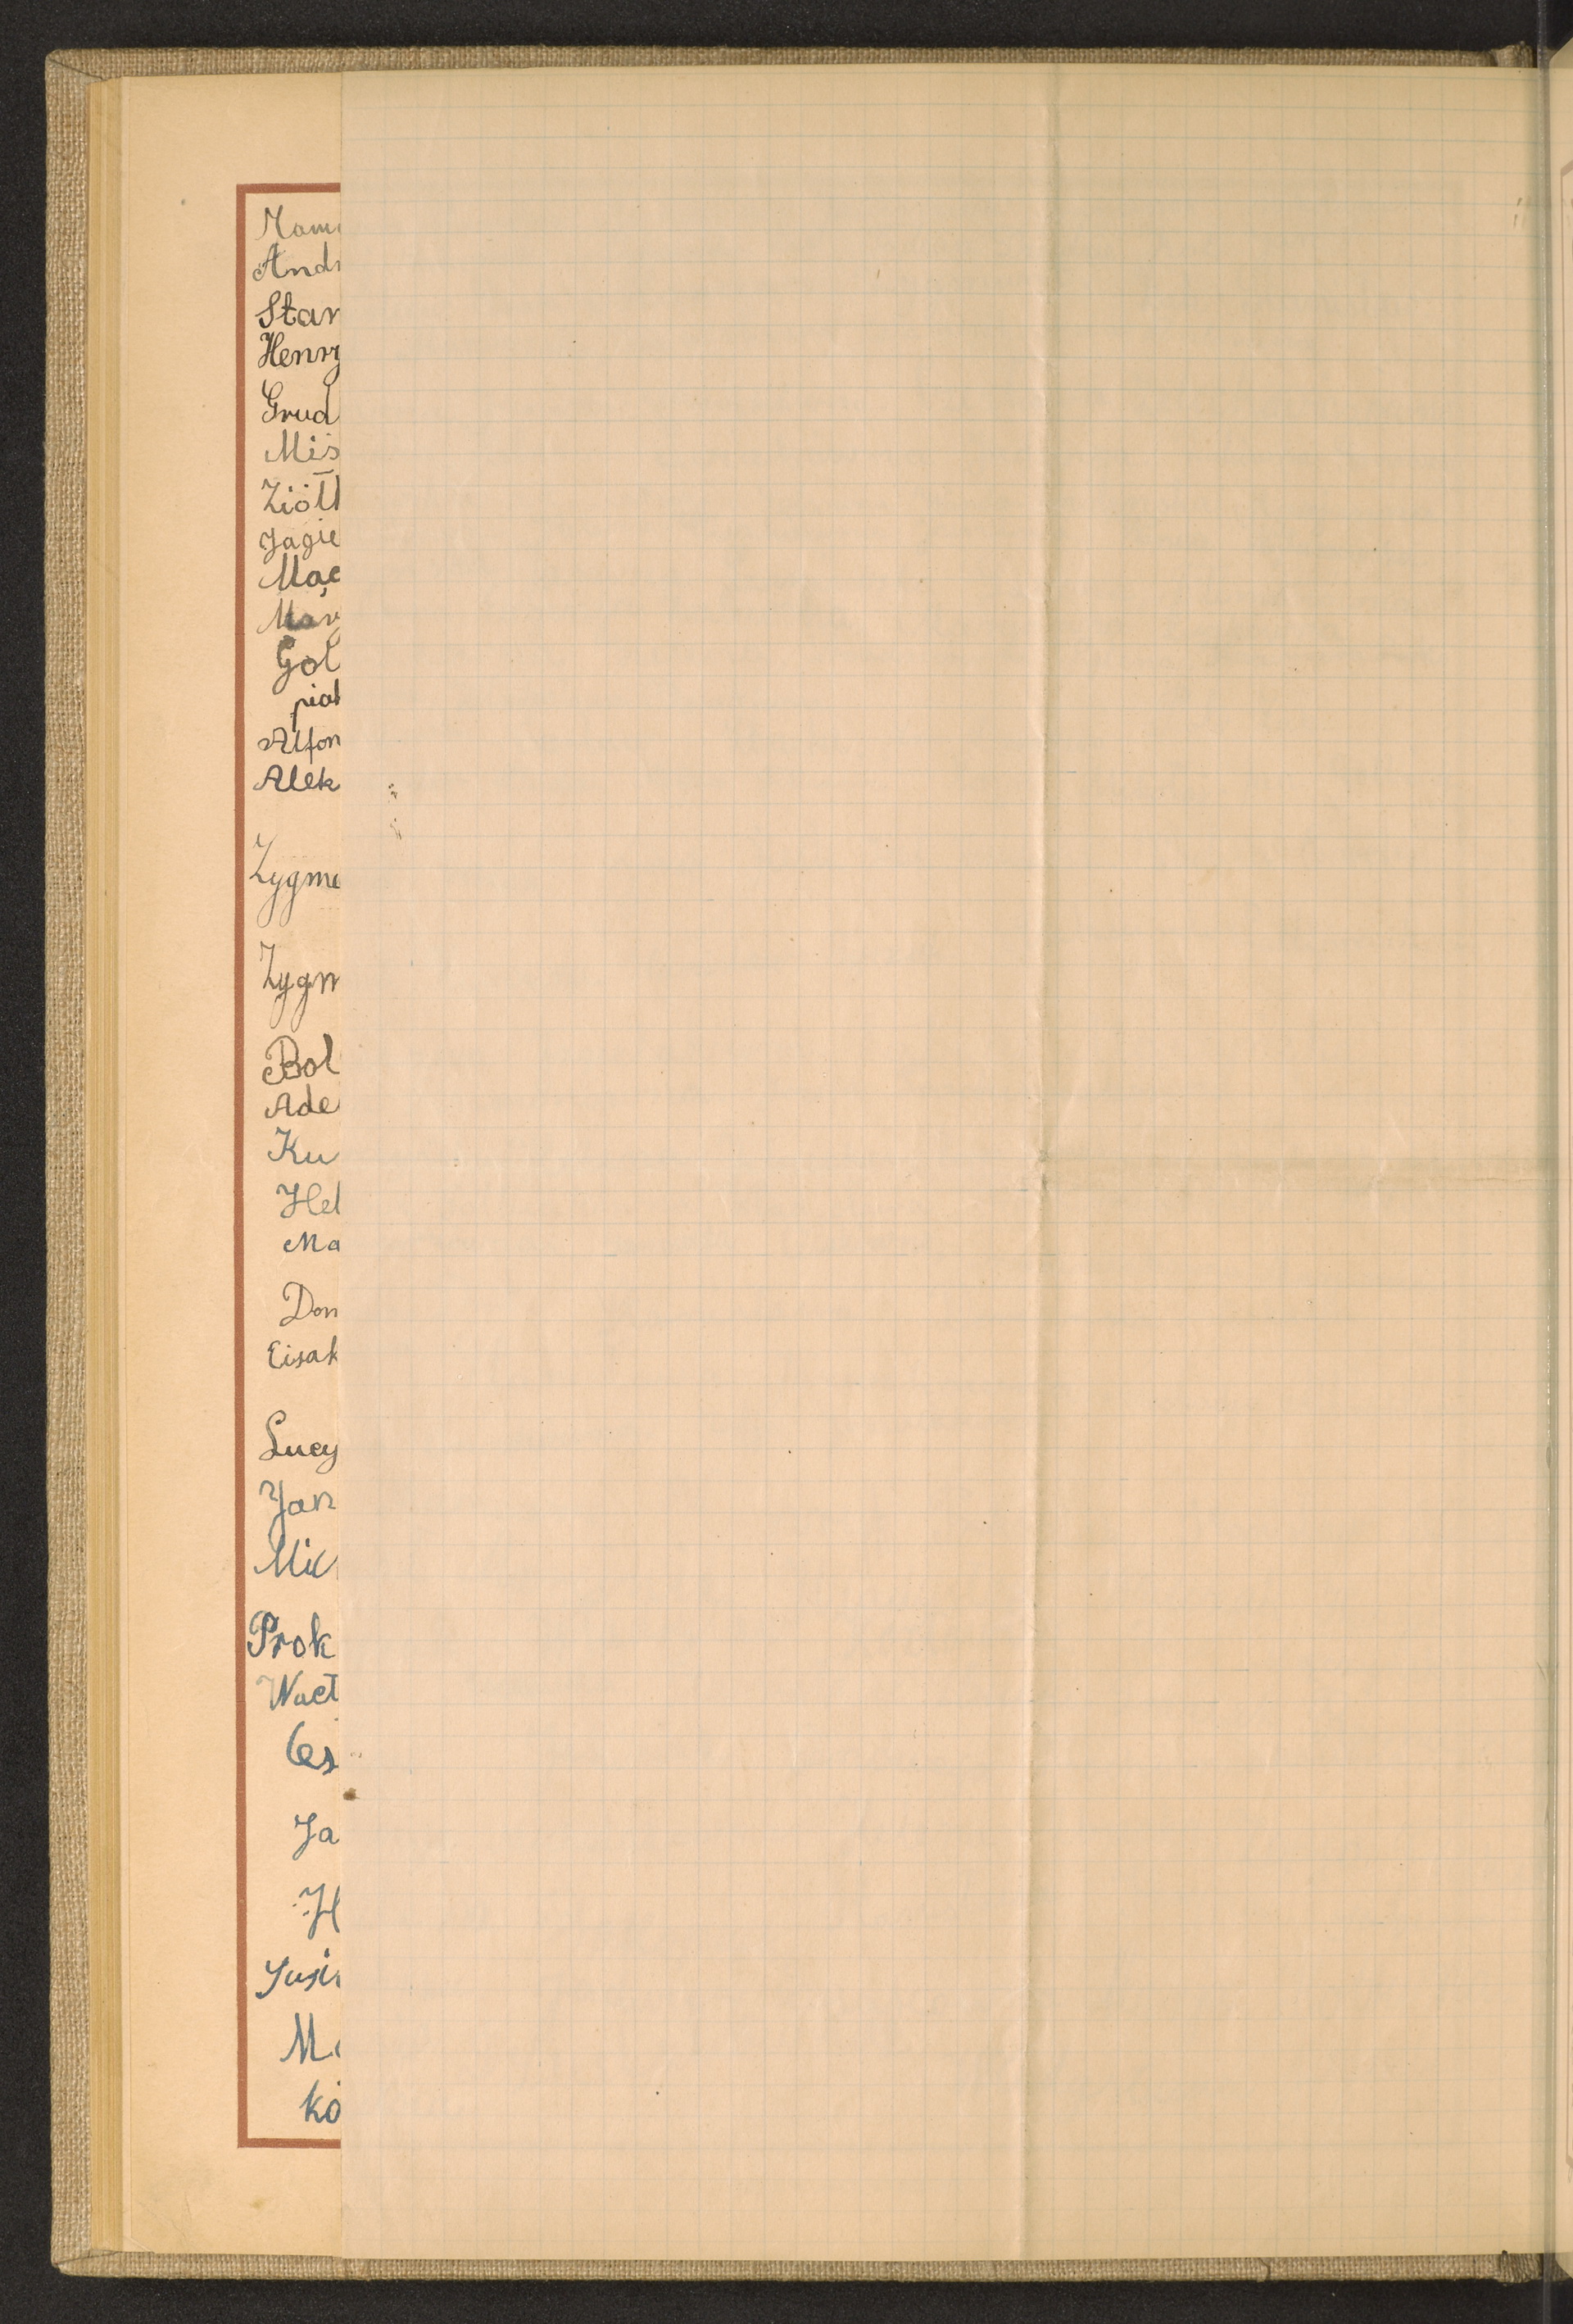 Mam
And
Stan
Henry
Grud
Mis
Ziółk
Jagie
Mac
Mary
Goł
piał
Alfon
Alek
Zygmu
Zygm
Bol
Ade
Ku
Hel
Ma
Dom
Eisak
Lucy
Jan
Mic
Prok
Wacł
Ces
Ja
H
Jusi
M
kó